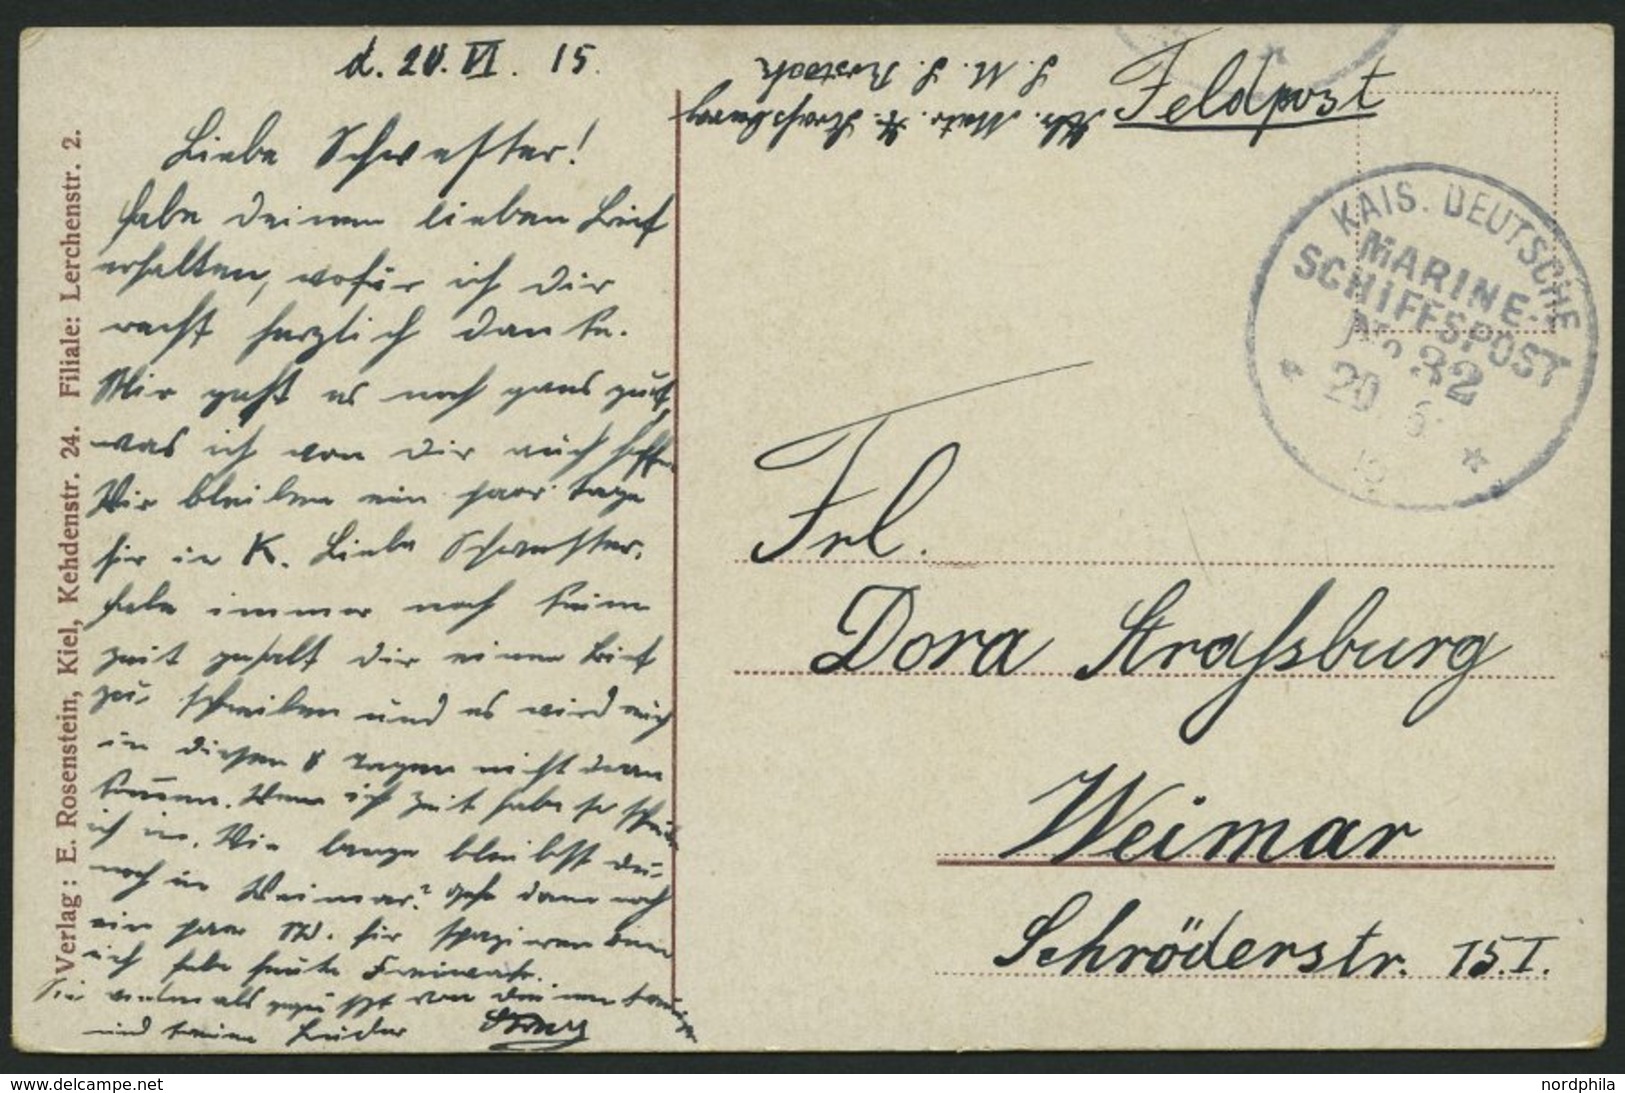 d. 20. VI. 15.
Liebe Schwester!
habe deinen lieben Brief
erhalten, wofür ich dir
recht herzlich danke.
Mir geht es noch ganz gut,
was ich von dir auch hoffe.
Wir bleiben ein paar tage
hir in K. Liebe Schwester,
habe immer noch keine
zeit gehabt dir einen Brief
zu schreiben und es wird auch
in diesen 8 tagen nicht dran
kommen. Wenn ich zeit habe so schreibe
ich im. Wie lange bleibst du
noch in Weimar? gehe dann noch
ein paar hir spaziren
ich habe heute Freiwache.
Sei vielmals gegrüßt von deinem
und Bruder
Feldpost
Abs. Matr. Straßburg
S. M. S. Rostock
KAIS. DEUTSCHE
MARINE-
SCHIFFSPOST
No 32
20 6
15
Frl.
Dora Straßburg
Weimar
Schröderstr. 15. I.
Verlag: E. Rosenstein, Kiel, Kehdenstr. 24. Filiale: Lerchenstr. 2.
www.delcampe.net
nordphila